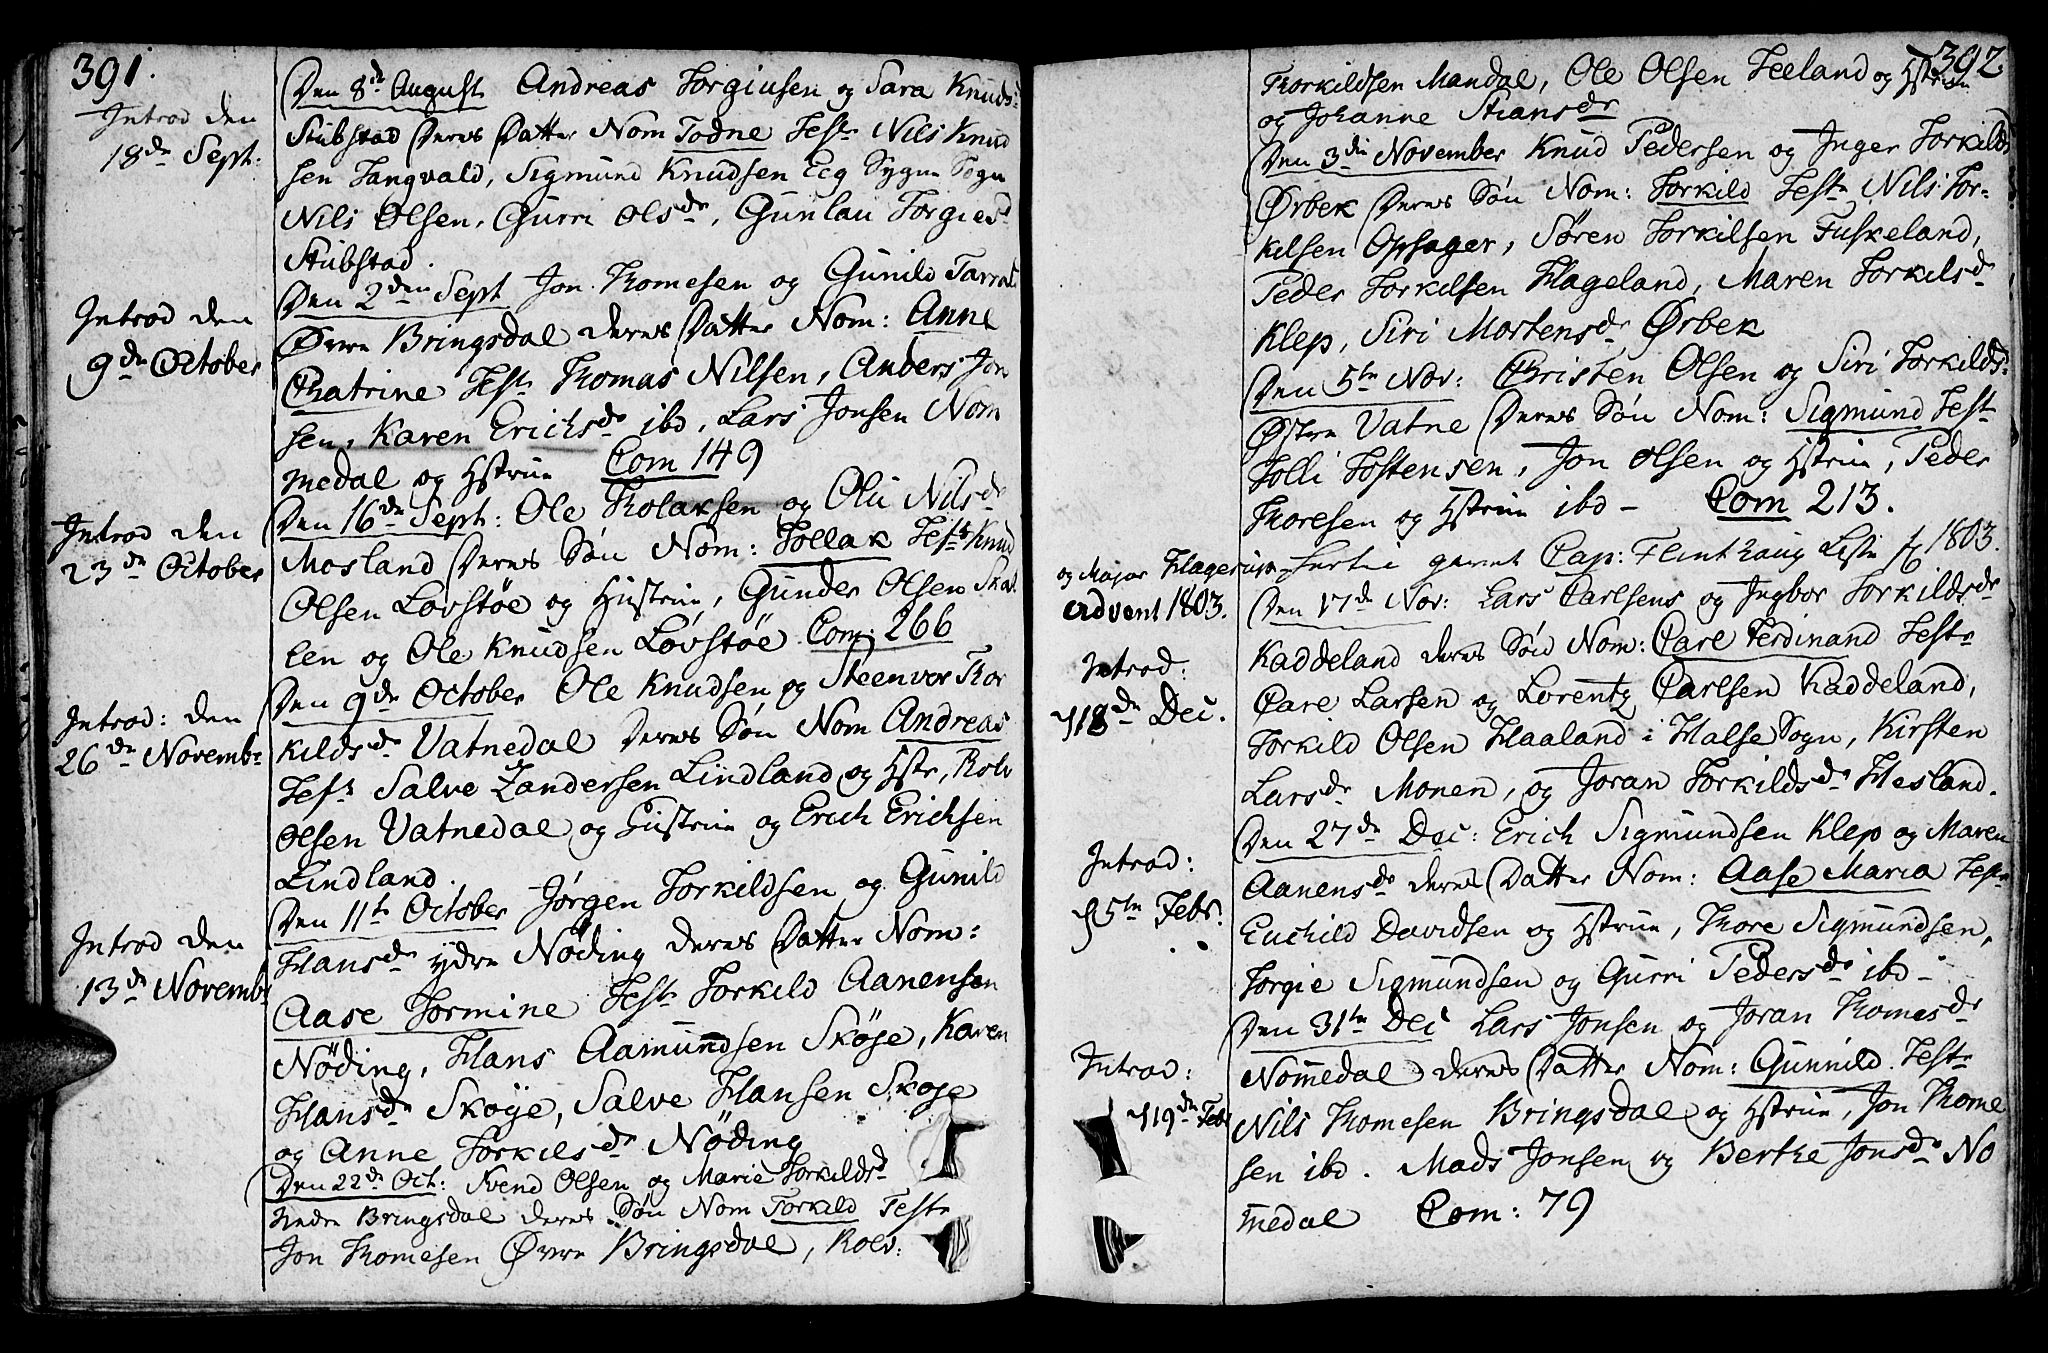 391.
Introd den
18de Sept:
Den 8de August Andreas Torgiusen og Sara Knuds
Stubstad Deres Datter Nom Todne Test Nils Knud
sen Tangvald, Sigmund Knudsen Eeg Sygne Sogn
Nils Olsen, Gurri Olsdr, Gunlau Torgiesd
Stubstad.
Introd den
9de October
Den 2den Sept Jon Thomesen og Gunild Tarral
Øvre Bringsdal deres Datter Nom: Anne
Chatrine Test Thomas Nilsen, Anders Jon
sen, Karen Erichsdr ibd, Lars Jonsen Nom
medal og Hstrue Com 149
Introd den
23de October
Den 16de Sept: Ole Tholaksen og Olu Nilsdr
Mosland Deres Søn Nom: Tollak Test Knud
Olsen Løvstøe og Hustrue, Gunder Olsen
len og Ole Knudsen Løvstøe Com: 266
Introd: den
26de Novembr
Den 9de October Ole Knudsen og Steenvor Tor
kildsdr Vatnedal Deres Søn Nom Andreas
Test Salve Zandersen Lindland og Hstr, Rolv
Olsen Vatnedal og Hustrue og Erich Erichsen
Lindland.
Introd den
13de Novemb
Den 11te October Jørgen Torkildsen og Gunild
Hansdr ydre Nøding deres Datter Nom:
Aase Tormine Test Torkild Aanensen
Nøding, Hans Aamundsen Skøye, Karen
Hansdr Skøye, Salve Hansen Skøye
og Anne Torkelsdr Nøding
Den 22de Oct: Svend Olsen og Marie Torkildsd
Nedre Bringsdal deres Søn Nom Torkild Test
Jon Thomesen Øvre Bringsdal, Rolv:
392
Thorkildsen Mandal, Ole Olsen Teeland og Hstrue
og Johanne Stiansdr
Den 3die November Knud Pedersen og Inger Torkilds
Ørbek Deres Søn Nom: Torkild Test Nils Tor-
kilsen Opsager, Søren Torkilsen Fuskeland,
Peder Torkilsen Hageland, Maren Torkilsdr
Klep, Siri Mortensdr Ørbek
Den 5te Nov: Christen Olsen og Siri Torkildsd
Østre Vatne Deres Søn Nom: Sigmund Test
Tolli Tostensen, Jon Olsen og Hstrue, Peder
Thoresen og Hstrue ibd - Com 213.
og Major Hagerup gamt Cap: Flinthaug Liste 1803.
advent 1803.
Introd:
d 18de Dec.
Den 17de Nov: Lars Carlsens og Ingbor Torkildsdr
Kaddeland deres Søn Nom: Carl Ferdinand Test
Carl Larsen og Lorentz Carlsen Kaddeland,
Torkild Olsen Haaland i Halse Sogn, Kirsten
Larsdr Monen, og Joran Torkildsdr Hesland.
Introd:
d 5te Febr.
Den 27de Dec: Erich Sigmundsen Klep og Maren
Aanensdr deres Datter Nom: Aase Maria Test
Euchild Davidsen og Hstrue, Thore Sigmundsen,
Torgie Sigmundsen og Gurri Pedersdr ibd -
Introd:
d 19de Feb
Den 31te Dec Lars Jonsen og Joran Thomesdr
Nomedal deres Datter Nom: Gunnild. Test
Nils Thomesen Bringsdal og Hstrue, Jon Thome
sen ibd. Mads Jonsen og Berthe Jonsdr No
medal Com: 79